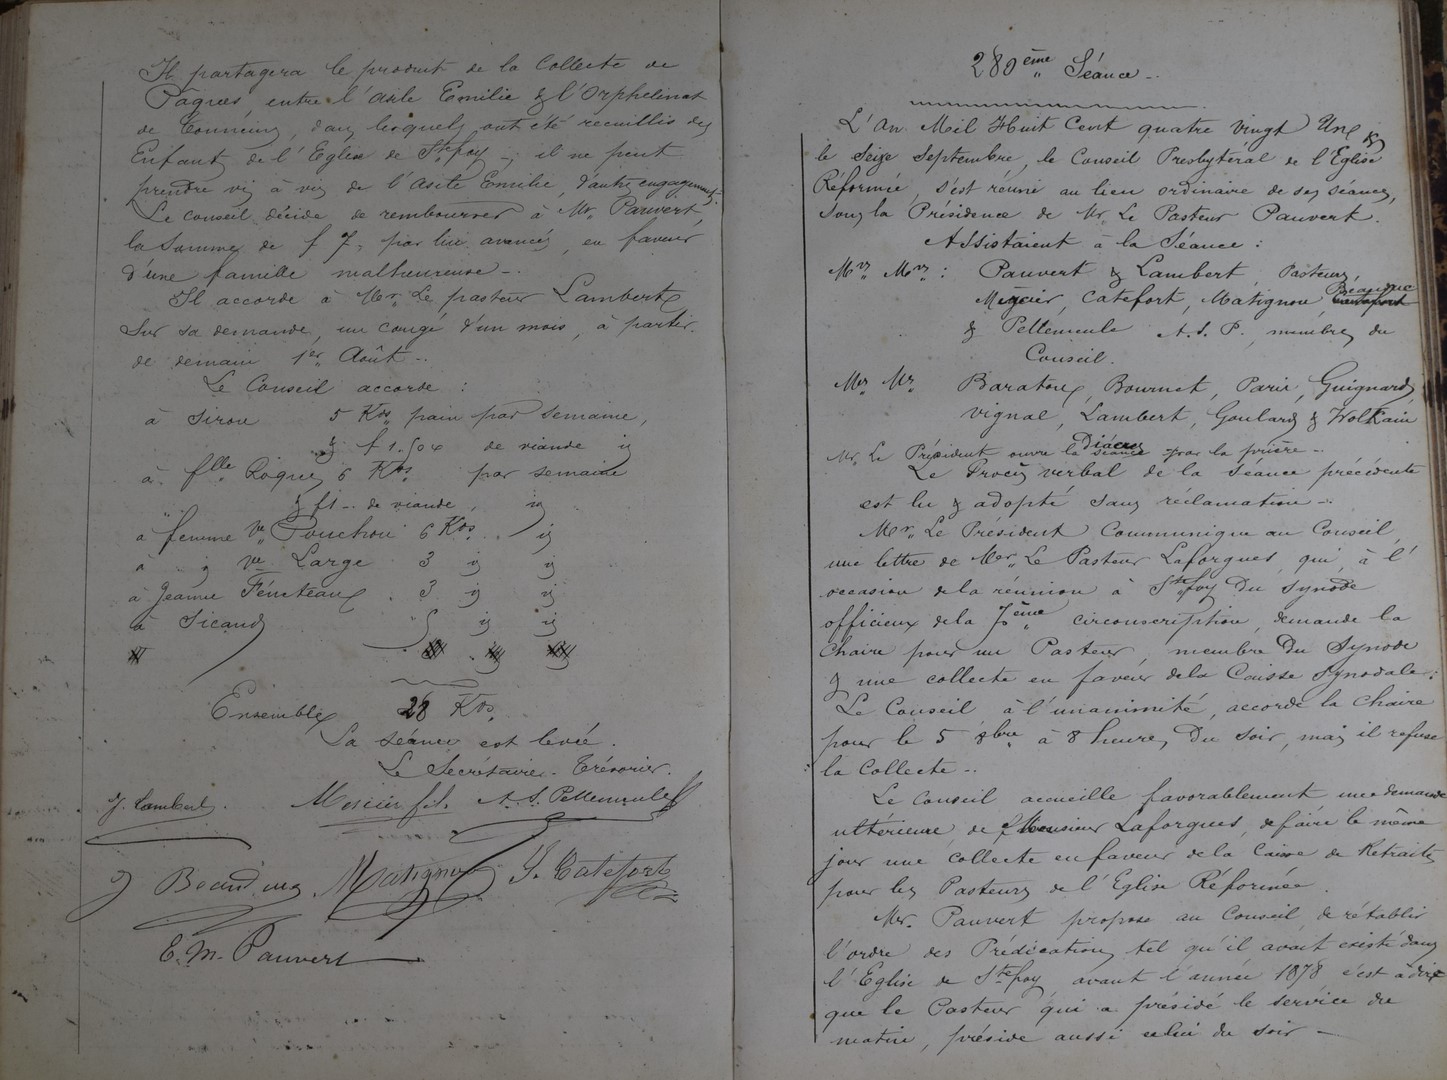 Il partagera le produit de la Collecte de
Pâques, entre l'Asile Emilie & l'Orphelinat
de Tonneins, dans lesquels ont été recueillis des
Enfants de l'Eglise de Ste foy -, il ne peut
prendre vis à vis de l'Asile Emilie, d'autres engagements.
Le conseil décide de rembourser à Mr. Pauvert,
la Somme de f 7, par lui avancés, en faveur
d'une famille malheureuse -.
Il accorde à Mr. Le pasteur Lambert
Sur sa demande, un congé d'un mois, à partir
de demain 1er Août -.
Le Conseil accorde :
à Sirou 5 Kos pain par semaine,
& f 1.50c de viande ij
à flle Roques 6 Kos par semaine
& f1 -. de viande, ij
à femme Ve Pouchou 6 Kos. ij
à ij Ve Large 3 ij ij
à Jeanne 3 ij ij
à Sicaud 5 ij ij
Ensemble 28 Kos.
La séance est levée.
Le Secrétaire - Trésorier.
J. Lambert. Mercier fils. A. S. Pellemeule
Matignon J. Catefort
E. M. Pauvert
280ème Séance -.
L'An Mil Huit Cent quatre vingt Un, &
le Seize Septembre, le Conseil Presbytéral de l'Eglise
Réformée, s'est réuni au lieu ordinaire de ses séances,
sous la Présidence de Mr. Le Pasteur Pauvert.
Assistaient à la Séance :
Mrs Mrs : Pauvert & Lambert, Pasteurs,
Mercier, Catefort, Matignon
& Pellemeule A. S. P., membres du
Conseil.
Mrs Mrs Baratou, Bournet, Paris, Guignard,
Vignal, Lambert, Goulard &
Diacres
Mr. Le Président ouvre la séance par la prière -.
Le Procès verbal de la Séance précédente
est lu & adopté sans réclamation -.
Mr. Le Président Communique au Conseil
une lettre de Mr. Le Pasteur Laforgues, qui, à l'
occasion de la réunion à Ste foy Du Synode
officieux de la 7ème circonscription, demande la
Chaire pour un Pasteur, membre Du Synode
& une collecte en faveur de la Caisse Synodale :
Le Conseil à l'unanimité, accorde la Chaire
pour le 5 8bre à 8 heures Du Soir, mais il refuse
la Collecte -.
Le Conseil accueille favorablement une demande
ultérieure de Monsieur Laforgues, de faire le même
jour une Collecte en faveur de la Caisse de Retraite
pour les Pasteurs de l'Eglise Réformée.
Mr. Pauvert propose au Conseil de rétablir
l'ordre des Prédications, tel qu'il avait existé dans
l'Eglise de Ste foy, avant l'année 1878 c'est à dire
que le Pasteur qui a présidé le service du
matin, préside aussi celui du soir -